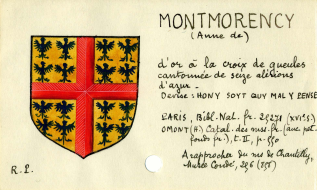 MONTMORENCY
(Anne de)
d'or à la croix de gueules
cantonnée de seize alérions
d'azur.
Devise: HONY SOYT QUY MAL Y PENSE
PARIS, Bibl. Nat. fr. (XVIe s.)
OMONT (H) Catal. des mss. fr. (anc. pet.
fonds fr.), t. II, p. 550
A rapprocher du ms de Chantilly,
Musée Condé,
R.L.